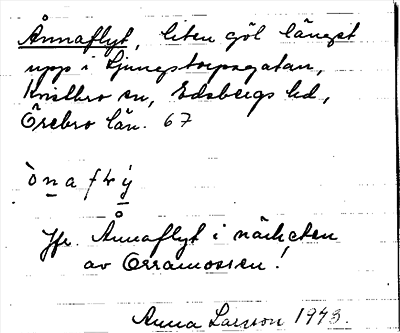 Ånnaflyt, liten göl längst
upp i Ljungstorpsgatan,
Kvistbro sn, Edsbergs hd,
Örebro län. 67
Jfr. Ånnaflyt i närheten
av Orramossen!
Anna Larsson 1943.